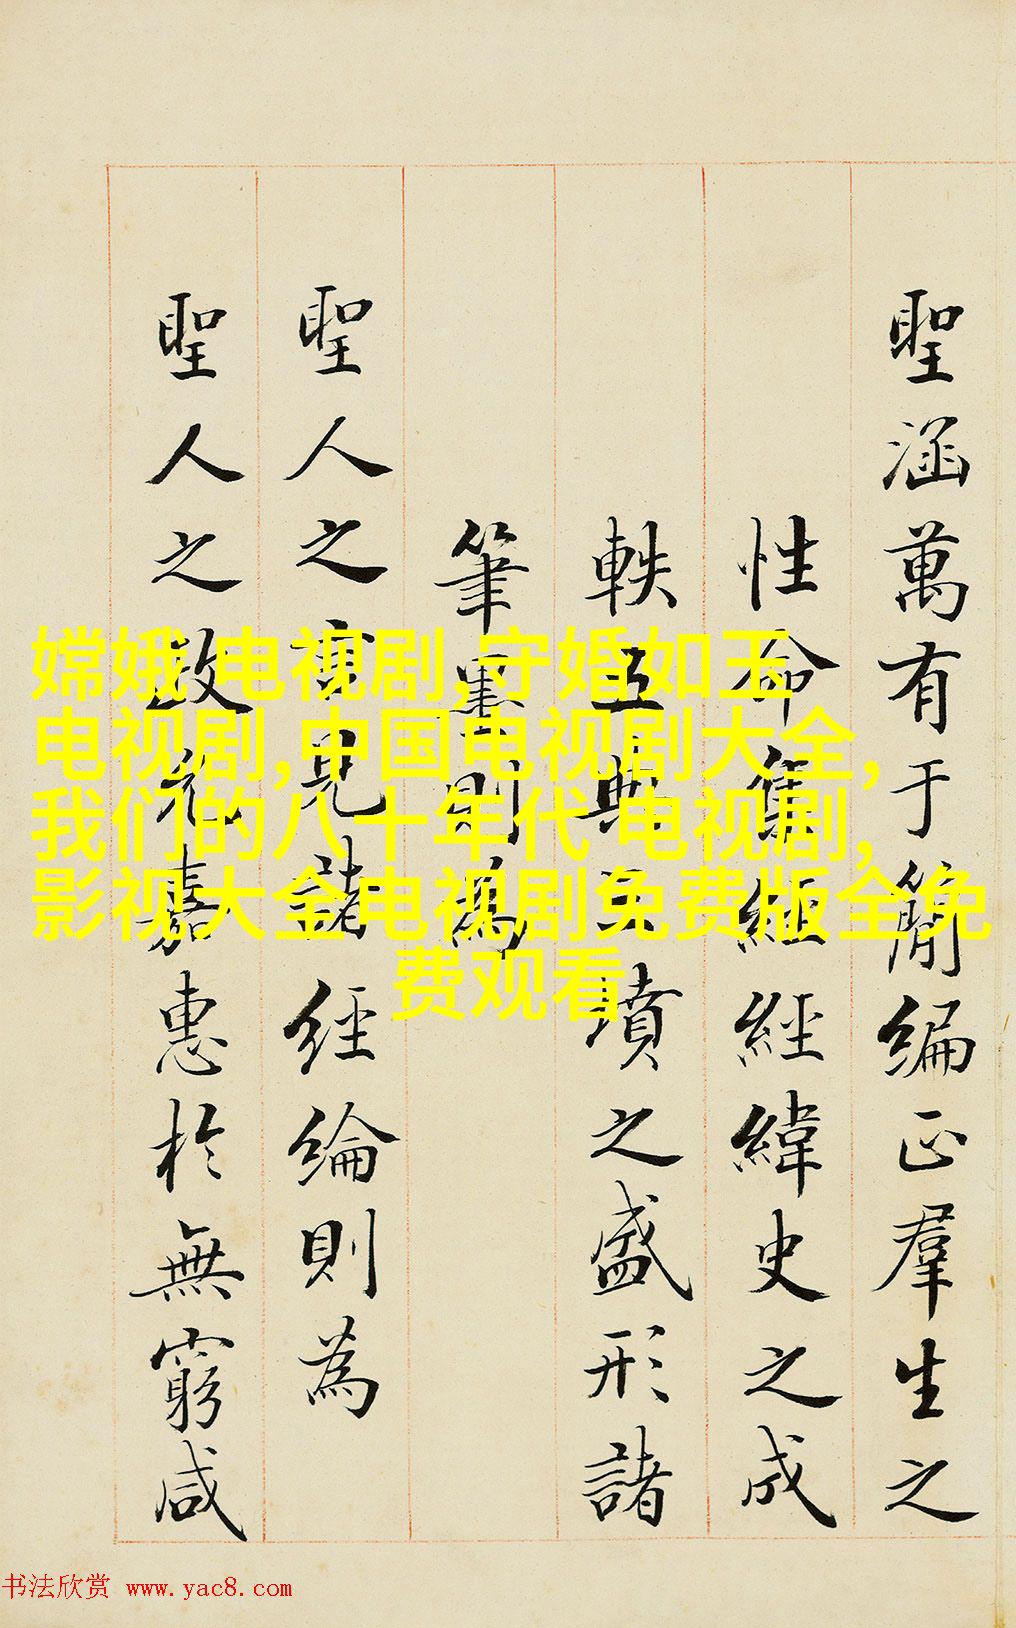 聖涵萬有于簡編正羣生之
性命集經經緯史之成
軼五典三墳之盛形諸
筆墨則為
聖人之言見諸經綸則為
聖人之政允嘉惠於無窮咸
嫦娥 电视剧,守婚如玉
电视剧,中国电视剧大全,
我们的八十年代 电视剧,
影视大全电视剧免费版全免
费观看
书法欣赏 www.yac8.com